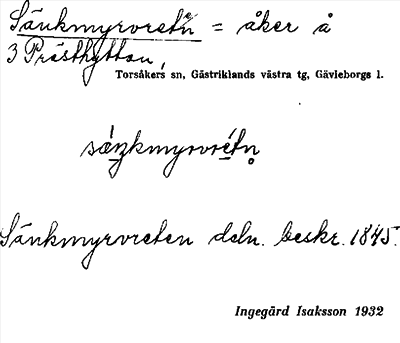 Sänkmyrvretęn = åker å
3 Prästhyttan,
Torsåkers sn, Gästriklands västra tg, Gävleborgs l.
sä́ŋkmyrvrétn̥
Sänkmyrvreten deln. beskr. 1845.
Ingegärd Isaksson 1932